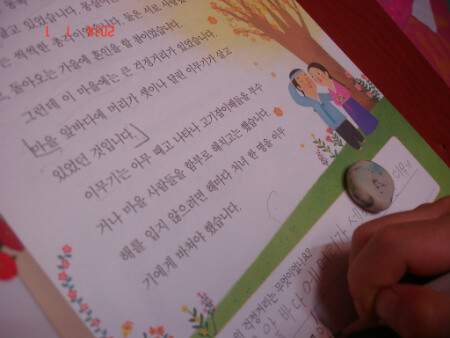 살고 있었습니다.
는 씩씩한 총각이었습니다. 둘은 서로 사랑했
돌아오는 가을에 혼인을 할 참이었습니다.
그런데 이 마을에는 큰 걱정거리가 있었습니다.
마을 앞바다에 머리가 셋이나 달린 이무기가 살고
있었던 것입니다.
이무기는 아무 때고 나타나 고기잡이배들을 부수
거나 마을 사람들을 함부로 해치고는 했습니다.
해를 입지 않으려면 해마다 처녀 한 명을 이무
기에게 바쳐야 했습니다.
의 걱정거리는 무엇이었나요?
바다에